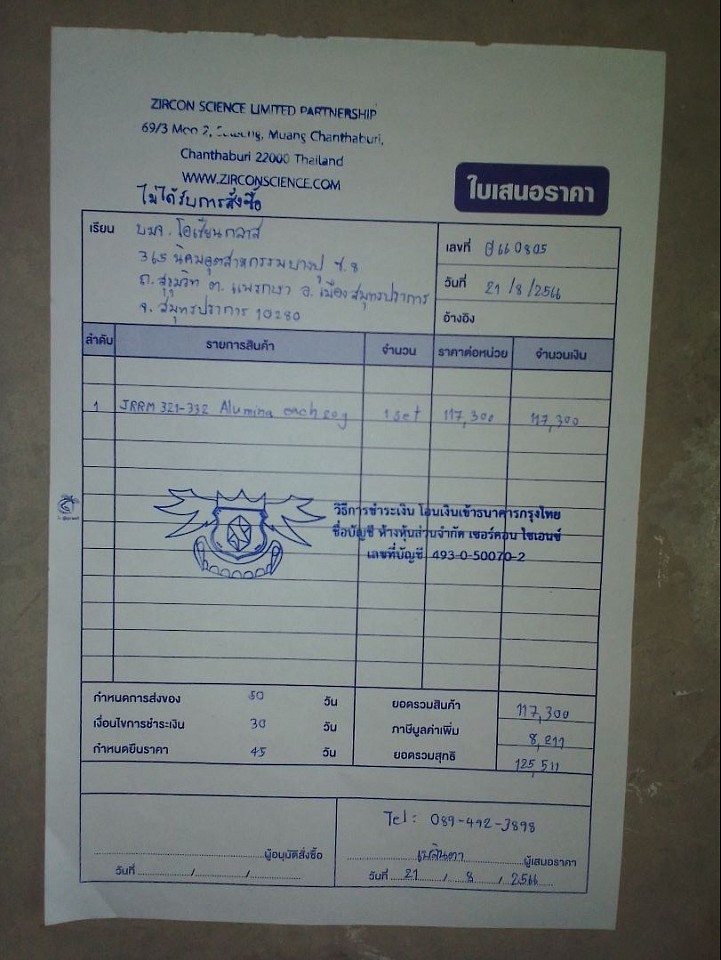 ZIRCON SCIENCE LIMITED PARTNERSHIP
69/3 Moo 2, Muang Chanthaburi,
Chanthaburi 22000 Thailand
WWW.ZIRCONSCIENCE.COM
ไม่ได้รับการสั่งซื้อ
ใบเสนอราคา
เรียน บมจ. โอเชียนกลาส
365 นิคมอุตสาหกรรมบางปู ซ.8
ถ. สุขุมวิท ต. แพรกษา อ. เมืองสมุทรปราการ
จ. สมุทรปราการ 10280
เลขที่ 660805
วันที่ 21/8/2566
อ้างอิง
ลำดับ รายการสินค้า จำนวน ราคาต่อหน่วย จำนวนเงิน
1 JRRM 321-332 Alumina each 20g 1 set 117,300 117,300
วิธีการชำระเงิน โอนเงินเข้าธนาคารกรุงไทย
ชื่อบัญชี ห้างหุ้นส่วนจำกัด เซอร์คอน ไซเอนซ์
เลขที่บัญชี 493-0-50070-2
กำหนดการส่งของ 60 วัน ยอดรวมสินค้า 117,300
เงื่อนไขการชำระเงิน 30 วัน ภาษีมูลค่าเพิ่ม 8,211
กำหนดยืนราคา 45 วัน ยอดรวมสุทธิ 125,511
Tel: 089-492-3898
ผู้อนุมัติสั่งซื้อ ผู้เสนอราคา
วันที่ / / วันที่ 21 / 8 / 2566